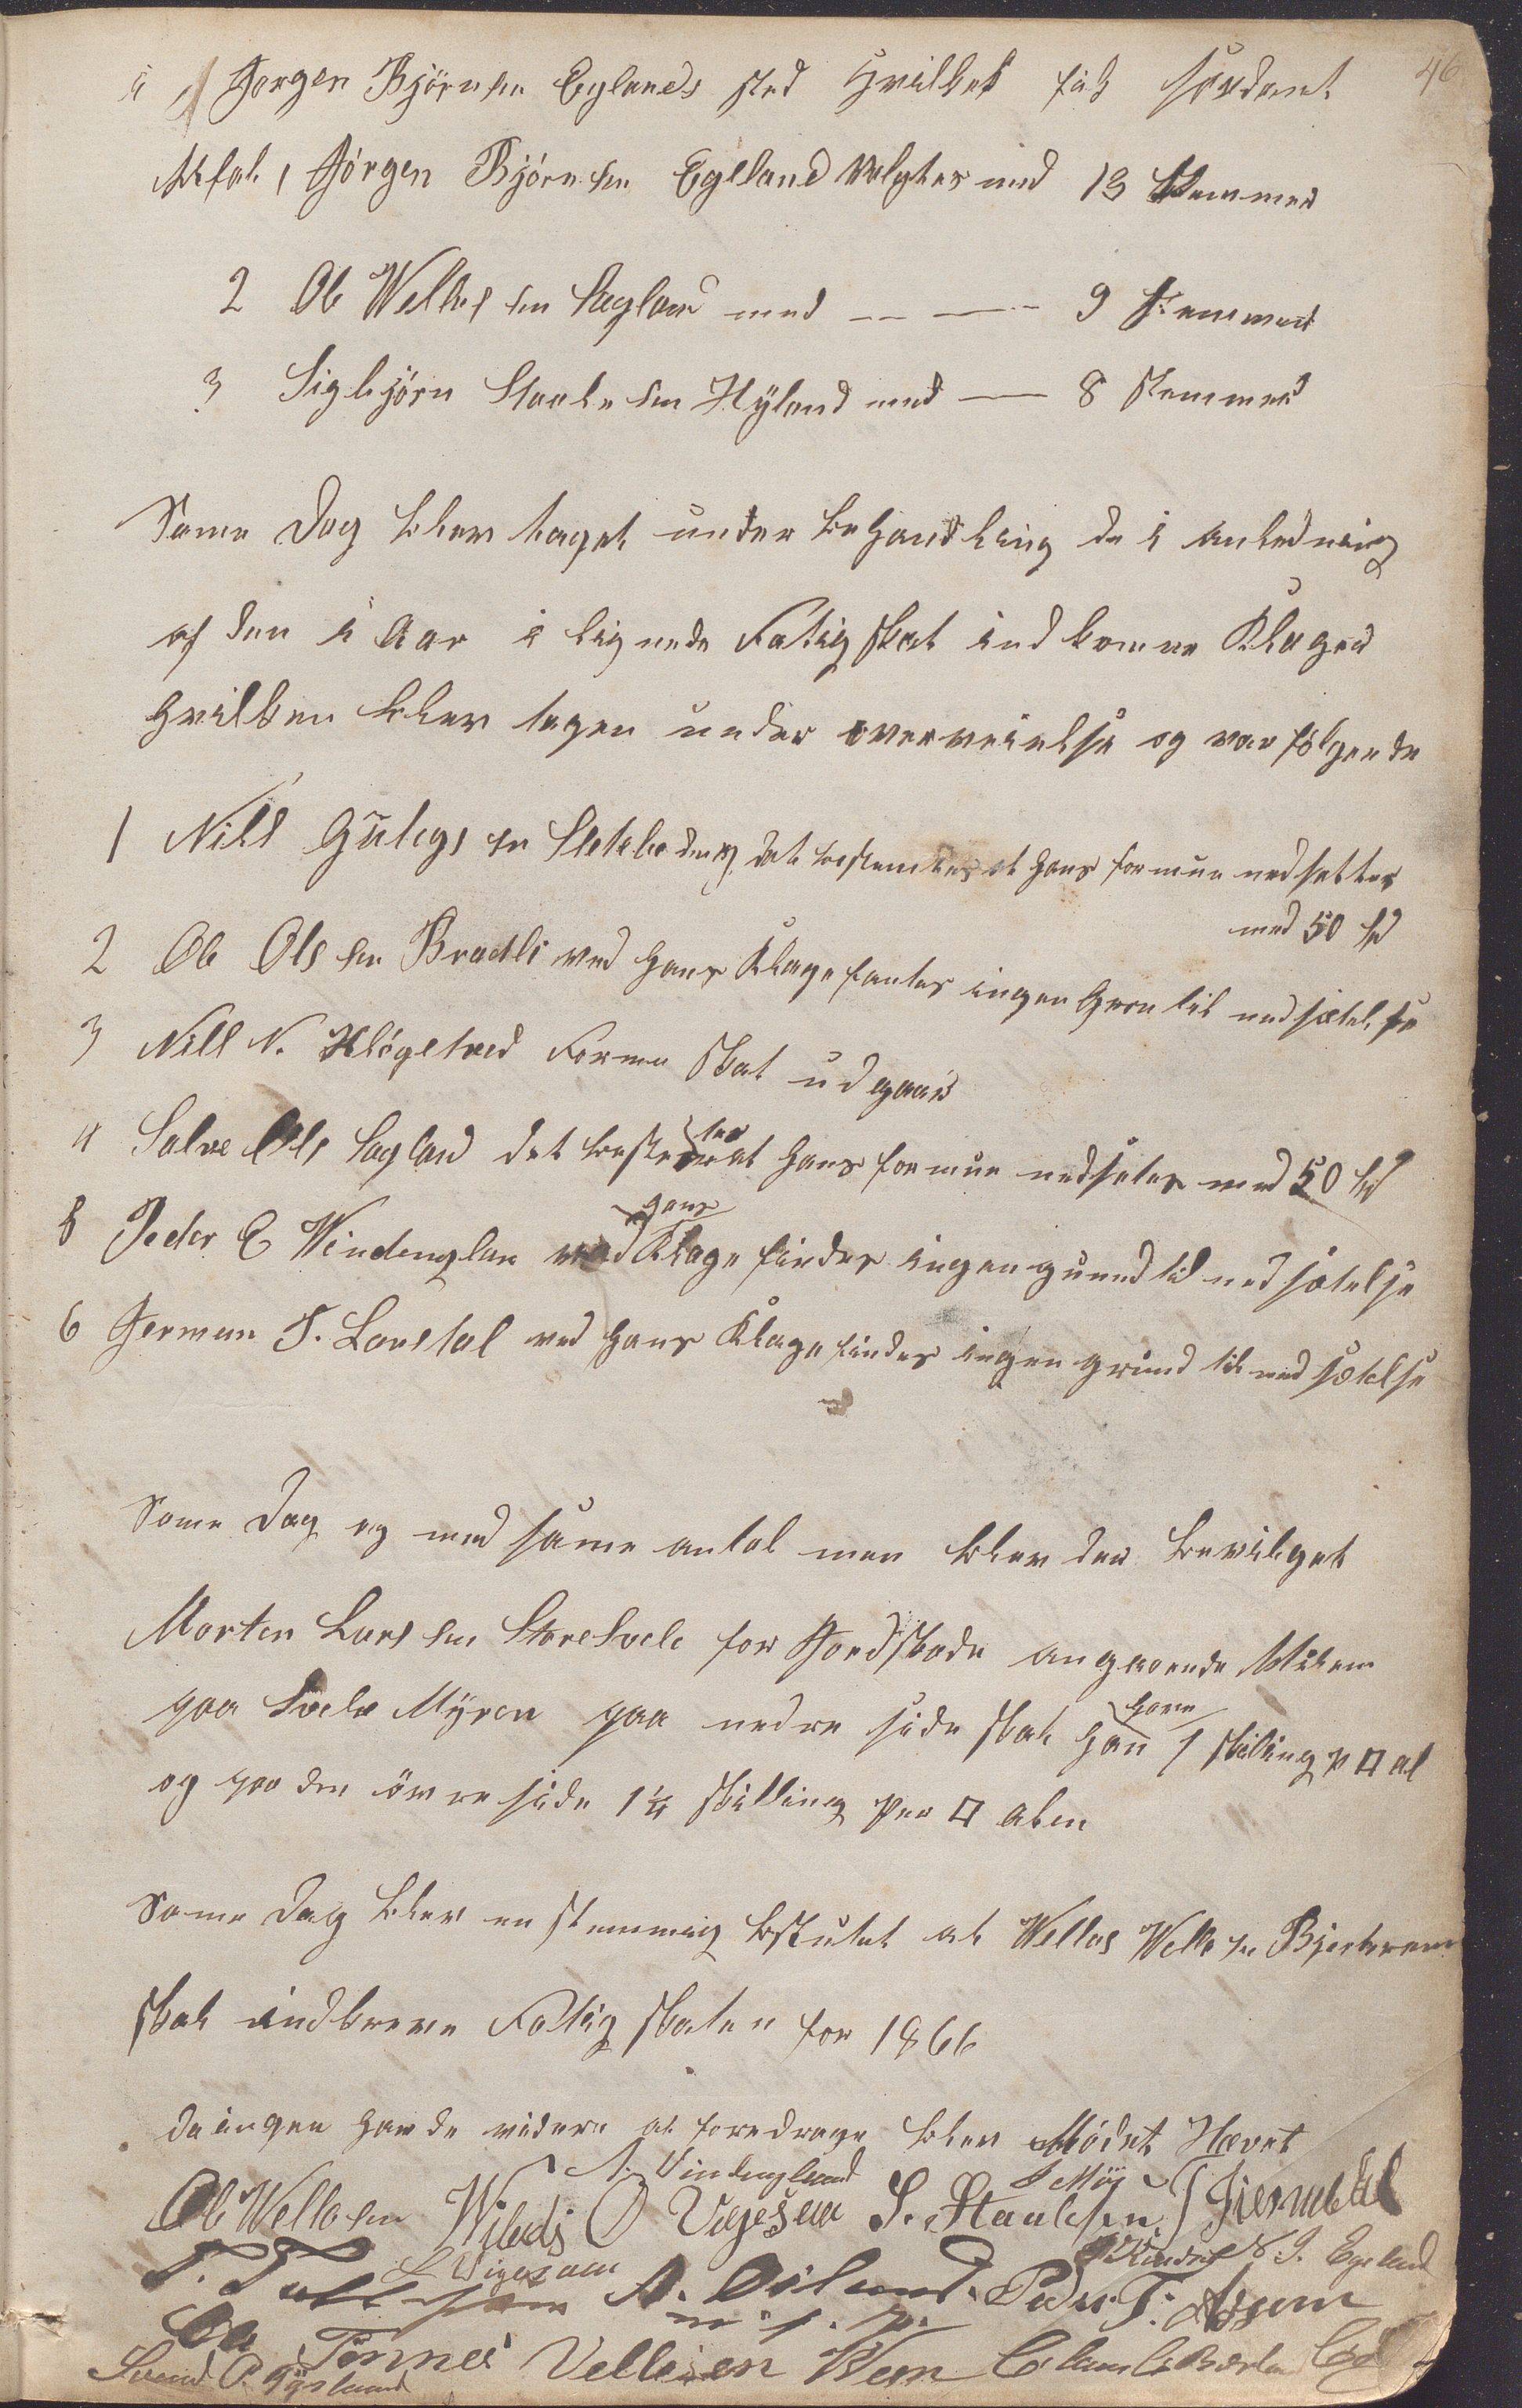 46
i Jørgen Bjørnsen Eglands sted Hvilket fik saadant
Utfal, Jørgen Bjørnsen Eglland valgtes med 13 stemmer
2 Ole Wellessen Sagland med — — 9 stemmer
3 Sigbjørn Staalesen Hÿland med — 8 stemmer
Same Dag blev taget under behandling de i anledning
af den i Aar i lignede Fatigskat indkomne Klager
hvilken blev tagen under overveielse og var følgende
1 Nills det bestemtes at hans formue nedsettes
med 50 sp
2 Ole Olssen Bradli ved hans Klage fantes ingen Gron til nedsættelse
3 Nill N. Forme skat udgaar
4 Salve Ols Sagland det bestemtes at hans formue nedsetes med 50 sp
5 Peder E Windenglan ved hans Klage findes ingen grund til nedsætelse
6 German T. Lonstal ved hans Klage findes ingen grund til nedsætelse
Same Dag og med same antal men blev der bevilget
Morten Larssen StoreSvele for Jordskade angaaende
paa Svele Mÿren paa nedre side skal han have 1 skiling p □ al
og paa den övre side 1¼ skilling per □ alen
Same Dag blev enstemmig beslutet at Wellas Wellesen Bjerkrem
skal indkreve Fatigskaten for 1866
da ingen havde videre at foredrage blev Mødet Hævet
A. Vindengland
Ole Wellesen O Vigesaa S. Staalesen
T. L Vigesaa A. Peder T.
m. f. p.
Ole Tønnes Vellesen
Svend P.